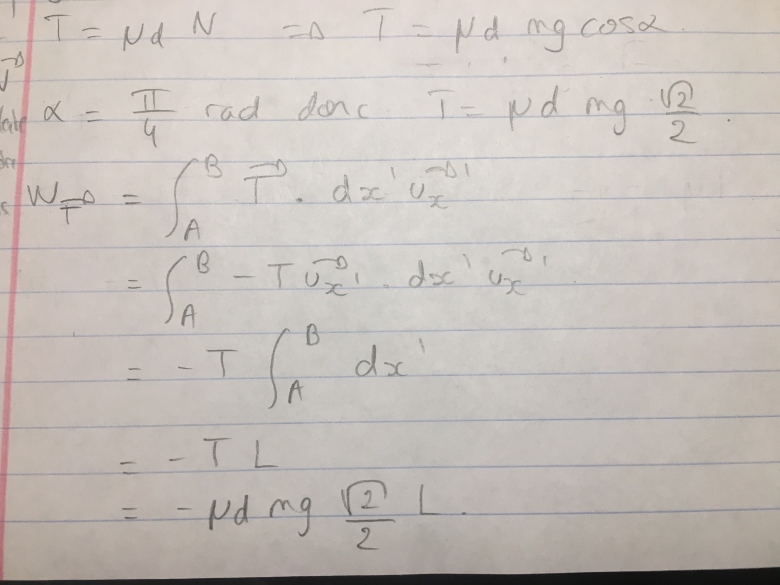 T = μd N ⇒ T = μd mg cosα.
α = π/4 rad donc T = μd mg √2/2.
W_T⃗ = ∫_A^B T⃗ . dx' u⃗x'
= ∫_A^B - T u⃗x' . dx' u⃗x'
= - T ∫_A^B dx'
= - T L
= - μd mg √2/2 L.